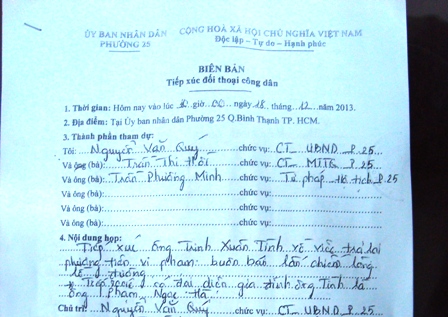 ỦY BAN NHÂN DÂN
PHƯỜNG 25
CỘNG HOÀ XÃ HỘI CHỦ NGHĨA VIỆT NAM
Độc lập – Tự do – Hạnh phúc
BIÊN BẢN
Tiếp xúc đối thoại công dân
1. Thời gian: Hôm nay vào lúc giờ 00 ngày 18 tháng 12 năm 2013.
2. Địa điểm: Tại Ủy ban nhân dân Phường 25 Q.Bình Thạnh TP. HCM.
3. Thành phần tham dự:
Tôi: Nguyễn Văn Quý chức vụ: CT UBND P.25
Và ông (bà): Trần Thị chức vụ: CT MTTQ P.25
Và ông (bà): Trần Phương Minh chức vụ: Tư pháp hộ tịch P.25
Và ông (bà): chức vụ:
Và ông (bà): chức vụ:
Và ông (bà): chức vụ:
4. Nội dung họp:
Tiếp xúc ông Trịnh Xuân Tình về việc trả lại
phương tiện vi phạm: buôn bán lấn chiếm lòng
lề đường
có đại diện gia đình ông Tình là
ông Phạm Ngọc
Chủ trì: Nguyễn Văn Quý chức vụ: CT UBND P.25